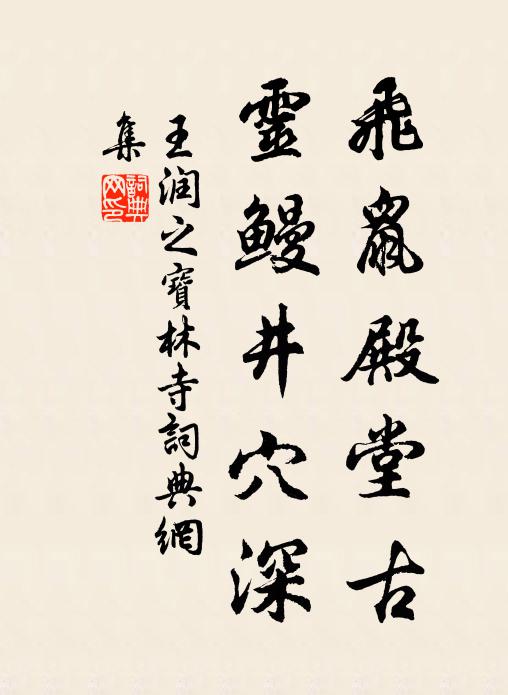 飛鼠殿堂古
靈鰻井穴深
王润之寶林寺詞典網
集
詞典
网印